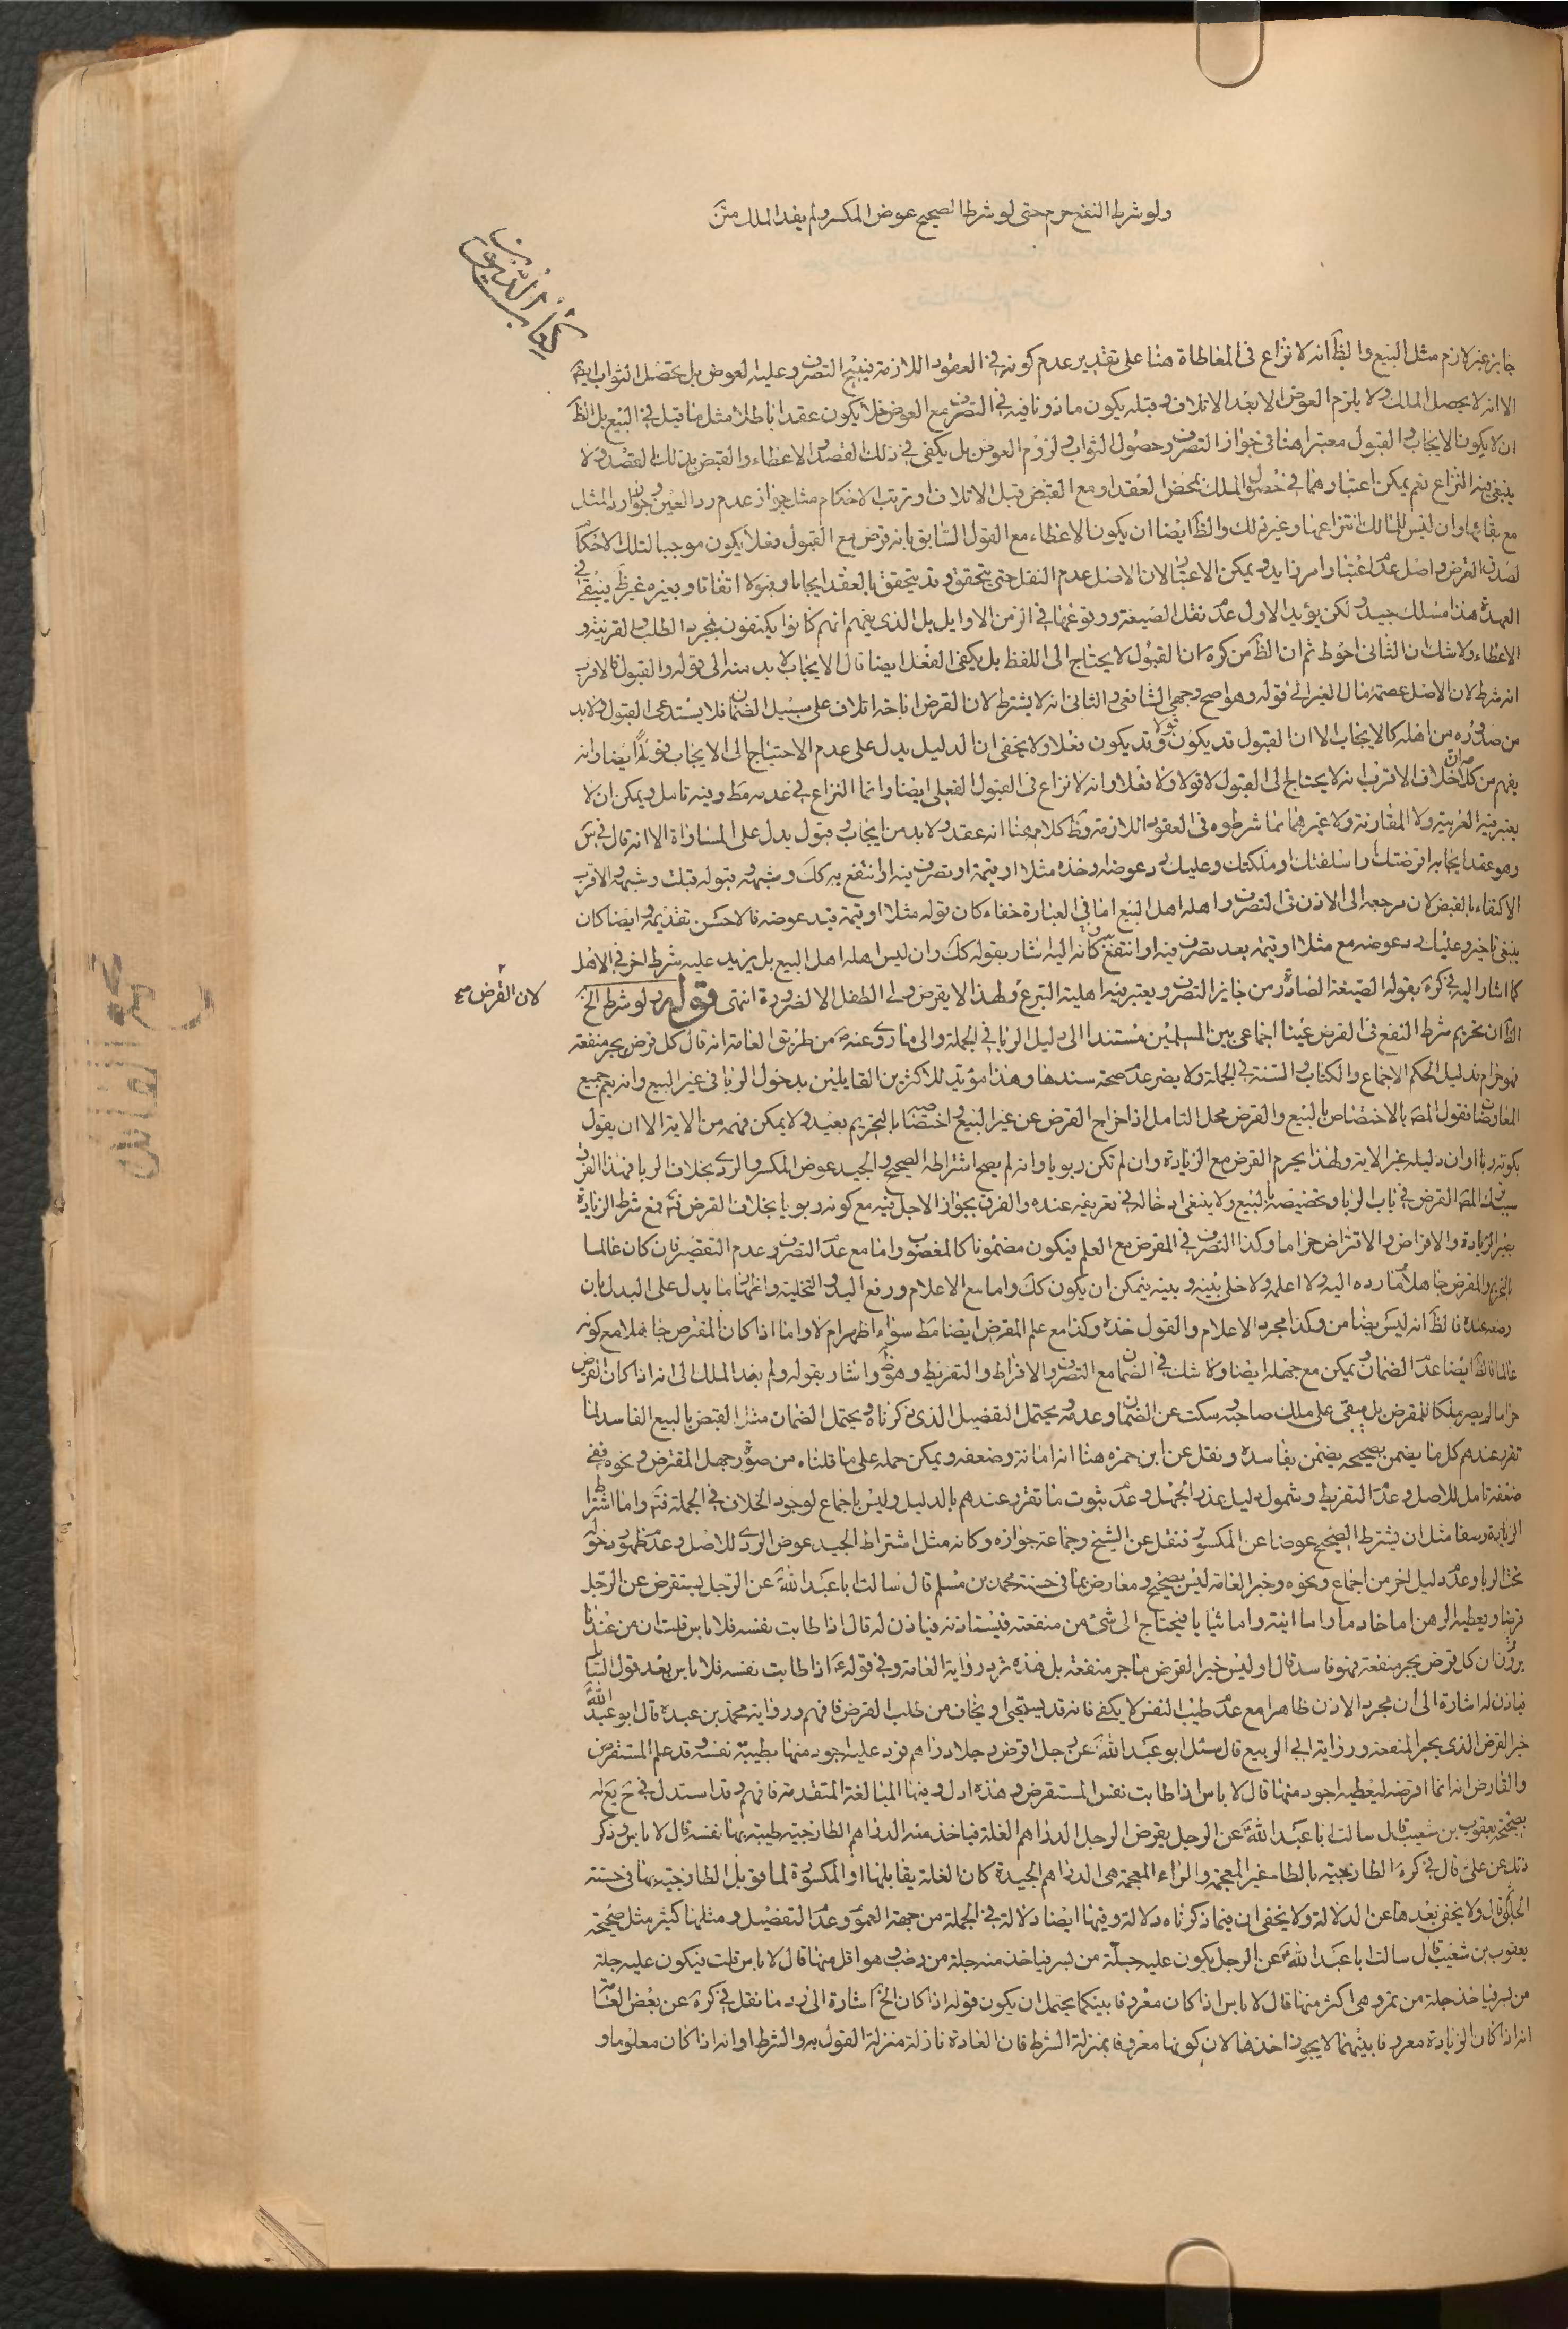 ولو شرط النفع حرم حتى لو شرط الصحيح عوض المكسر ولم يفد الملك متن
كتاب الديون
جايز غير لازم مثل البيع والظ انه لا نزاع فى المعاطاة هنا على تقدير عدم كونه فى العقود اللازمة فيبيح التصرف وعليه العوض بل يحصل الثواب ايضا
الا انه لا يحصل الملك ولا يلزم العوض الا بعد الاتلاف وقبله يكون ماذونا فيه فى التصرف مع العوض فلا يكون عقدا باطلا مثل ما قيل فى البيع بل الظ
ان لا يكون الايجاب والقبول معتبرا هنا فى جواز التصرف وحصول الثواب ولزوم العوض بل يكفى فى ذلك القصد والاعطاء والقبض بذلك القصد ولا
ينبغى فيه النزاع نعم يمكن اعتبارهما فى حصول الملك بمحض العقد او مع القبض قبل الاتلاف وترتب الاحكام مثل جواز عدم رد العين وجواز رد المثل
مع بقائها وان ليس للمالك انتزاعها وغير ذلك والظ ايضا ان يكون الاعطاء مع القول السابق بانه قرض مع القبول فعلا يكون موجبا لتلك الاحكام
لصدق القرض واصل عدم اعتبار امر زايد ويمكن الاعتبار لان الاصل عدم النقل حتى يتحقق وقد يتحقق بالعقد ايجابا وقبولا اتفاقا وبغيره غير ظ فيبقى فى
العهدة هذا مسلك جيد ولكن يؤيد الاول عدم نقل الصيغة ووقوعها فى الزمن الاوايل بل الذى يفهم انهم كانوا يكتفون بمجرد الطلب والقرينة و
الاعطاء ولا شك ان الثانى احوط ثم ان الظ من كره ان القبول لا يحتاج الى اللفظ بل يكفى الفعل ايضا قال الايجاب لا بد منه الى قوله والقبول فالاقرب
انه شرط لان الاصل عصمة مال الغير الى قوله وهو اصح وجهى الشافعى والثانى انه لا يشترط لان القرض اباحة اتلاف على سبيل الضمان فلا يستدعى القبول ولا بد
من صدوره من اهله كالايجاب الا ان القبول قد يكون قولا وقد يكون فعلا ولا يخفى ان الدليل يدل على عدم الاحتياج الى الايجاب قولا ايضا وانه
يفهم من كلامه ان خلاف الاقرب انه لا يحتاج الى القبول لا قولا ولا فعلا وانه لا نزاع فى القبول الفعلى ايضا وانما النزاع فى عدمه مط وفيه تامل ويمكن ان لا
يعتبر فيه العربية ولا المقارنة ولا غيرهما مما شرطوه فى العقود اللازمة وظ كلامهم هنا انه عقد ولا بد من ايجاب وقبول يدل على المساواة الا انه قال فى س
وهو عقد ايجابه اقرضتك او اسلفتك او ملكتك وعليك رد عوضه وخذه مثلا او قيمة او تصرف فيه او انتفع به كك وشبهه وقبوله قبلت وشبهه والاقرب
الاكتفاء بالقبض لان مرجعه الى الاذن فى التصرف واهله اهل البيع اما فى العبارة خفاء كان قوله مثلا او قيمة قيد عوضه فالاحسن تقديمه وايضا كان
ينبغى تاخير وعليك رد عوضه مع مثلا او قيمة بعد تصرف فيه او انتفع به كانه اليه اشار بقوله كك وان ليس اهله اهل البيع بل يزيد عليه شرط اخر فى الاهل
كما اشار اليه فى كره بقوله الصيغة الصادرة من جايز التصرف ويعتبر فيه اهلية التبرع ولهذا لا يقرض ولى الطفل الا لضرورة انتهى قوله ولو شرط الخ
لان القرض مع
الظ ان تحريم شرط النفع فى القرض عينا اجماعى بين المسلمين مستندا الى دليل الربا فى الجملة والى ما روى عنه ص من طريق العامة انه قال كل قرض يجر منفعة
فهو حرام فدليل الحكم الاجماع والكتاب والسنة فى الجملة ولا يضر عدم صحة سندها وهذا مؤيد للاكثرين القايلين بدخول الربا فى غير البيع وانه يعم جميع
المعاوضات فقول المصه بالاختصاص بالبيع والقرض محل التامل اذ اخراج القرض عن غير البيع واختصاصه بالتحريم بعيد ولا يمكن فهمه من الاية الا ان يقول
بكونه ربا وان دليله غير الاية ولهذا يحرم القرض مع الزيادة وان لم تكن ربويا وانه لم يصح اشتراط الصحيح والجيد عوض المكسر والردى بخلاف الربا فهذا الفرق
القرض فى باب الربا وتخصيصه بالبيع ولا ينبغى ادخاله فى تعريفه عنده والفرق بجواز الاجل فيه مع كونه ربويا بخلاف القرض فت فمع شرط الزيادة
يحرم الزيادة والاقراض والاقتراض حراما وكذا التصرف فى المقرض مع العلم فيكون مضمونا كالمغصوب واما مع عدم التصرف وعدم التقصير فان كان عالما
بالتحريم والمقرض جاهلا فما رده اليه ولا اعلمه ولا خلى بينه وبينه يمكن ان يكون كك واما مع الاعلام ورفع اليد والتخلية واتيانه بما يدل على البدل بان
وضعه عنده فالظ انه ليس بضامن وكذا مجرد الاعلام والقول خذه وكذا مع علم المقرض ايضا مط سواء اظهر ام لا واما اذا كان المقترض جاهلا مع كونه
عالما فالظ ايضا عدم الضمان ويمكن مع جهله ايضا ولا شك فى الضمان مع التصرف والافراط والتفريط وهو ظ واشار بقوله ولم يفد الملك الى انه اذا كان القرض
حراما لم يصر ملكا للمقرض بل يبقى على ملك صاحبه وسكت عن الضمان وعدمه ويحتمل التفصيل الذى ذكرناه ويحتمل الضمان مثل القبض بالبيع الفاسد لما
تقرر عندهم كل ما يضمن بصحيحه يضمن بفاسده ونقل عن ابن حمزه هنا انه امانة وضعفه ويمكن حمله على ما قلناه من صورة جهل المقترض ونحوه ففى
ضعفه تامل للاصل وعدم التفريط وشمول دليل عذر الجهل وعدم ثبوت ما تقرر عندهم بالدليل وليس باجماع لوجود الخلاف فى الجملة فت واما اشتراط
الزيادة وصفا مثل ان يشترط الصحيح عوضا عن المكسور فنقل عن الشيخ وجماعة جوازه وكانه مثل اشتراط الجيد عوض الردى للاصل وعدم ظهور دخوله
تحت الربا وعدم دليل اخر من اجماع ونحوه وخبر العامة ليس بصحيح ومعارض بما فى حسنة محمد بن مسلم قال سالت ابا عبد الله ع عن الرجل يستقرض عن الرجل
قرضا ويعطيه الرهن اما خادما واما انية واما ثيابا فيحتاج الى شىء من منفعته فيستاذنه فياذن له قال اذا طابت نفسه فلا باس قلت ان من عندنا
يروون ان كل قرض يجر منفعة فهو فاسد قال اوليس خير القرض ما جر منفعة بل هذه ترد رواية العامة وفى قوله ع اذا طابت نفسه فلا باس بعد قول السايل
فياذن له اشارة الى ان مجرد الاذن ظاهرا مع عدم طيب النفس لا يكفى فانه قد يستحيى او يخاف من طلب القرض فافهم ورواية محمد بن عبدة قال ابو عبد الله ع
خير القرض الذى يجر المنفعة ورواية ابى الربيع قال سئل ابو عبد الله ع عن رجل اقرض رجلا دراهم فرد عليه اجود منها بطيبة نفسه وقد علم المستقرض
والقارض انه انما اقرضه ليعطيه اجود منها قال لا باس اذا طابت نفس المستقرض وهذه ادل وفيها المبالغة المتقدمة فافهم وقد استدل فى ح يع له
بصحيحة يعقوب بن شعيب قال سالت ابا عبد الله ع عن الرجل يقرض الرجل الدراهم الغلة فياخذ منه الدراهم الطازجية طيبة بها نفسه قال لا باس وذكر
ذلك عن على ع قال فى كره الطازجية بالطاء غير المعجمة والزاء المعجمة هى الدراهم الجيدة كان الغلة يقابلها او المكسورة لما قوبل الطازجية بها فى حسنة
الحلبى قال ولا يخفى بعدها عن الدلالة ولا يخفى ان فيما ذكرناه دلالة وفيها ايضا دلالة فى الجملة من جهة العموم وعدم التفصيل ومثلها كثير مثل صحيحة
يعقوب بن شعيب قال سالت ابا عبد الله ع عن الرجل يكون عليه جلة من بسر فياخذ منه جلة من رطب وهو اقل منها قال لا باس قلت فيكون عليه جلة
من بسر فياخذ جلة من تمر وهى اكثر منها قال لا باس اذا كان معروفا بينكما يحتمل ان يكون قوله اذا كان الخ اشارة الى رد ما نقل فى كره عن بعض العامة
انه اذا كان الزيادة معروفا بينهما لا يجوز اخذها لان كونها معروفا بمنزلة الشرط فان العادة نازلة منزلة القول به والشرط او انه اذا كان معلوما و